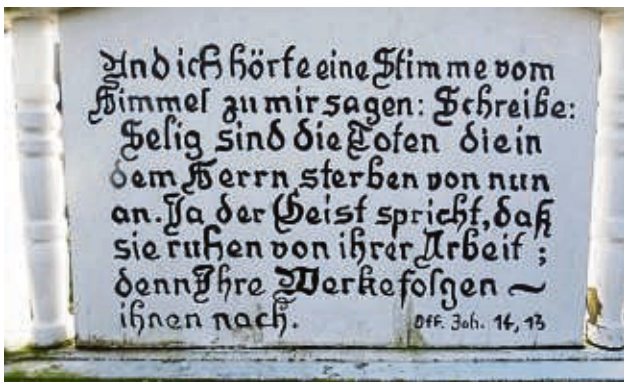 Und ich hörte eine Stimme vom
Himmel zu mir sagen: Schreibe:
Selig sind die Toten die in
dem Herrn sterben von nun
an. Ja der Geist spricht, daß
sie ruhen von ihrer Arbeit ;
denn Ihre Werke folgen ~
ihnen nach. Off. Joh. 14, 13